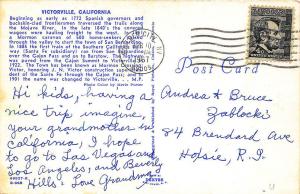 VICTORVILLE, CALIFORNIA
Beginning as early as 1772 Spanish governors and
buckskin-clad frontiersmen traversed the trails along
the Mojave River. In the late 1840's the covered
wagons were hauling freight to the west. In
a Mormon caravan of 500 homeseekers
through the valley to start the town of San Bernardino.
In 1885 the first of the Southern California
way (Santa Fe subsidiary) ran from San Bernardino
to and on to Barstow. The highway
was paved from the Cajon Summit to Victorville in
1922. The town was known as
commemorating J. N. Victor construction
dent of the Santa Fe through the Cajon Pass; and in
1901 the name was changed to Victorville.
Post Card
Hi kids, having a
nice trip imagine,
your grandmother in
California, I hope
to go to Las Vegas and
Los Angeles, and Beverly
Hills. Love Grandma
Andrea & Bruce
Zablocki
84 Brendard Ave
R.I.